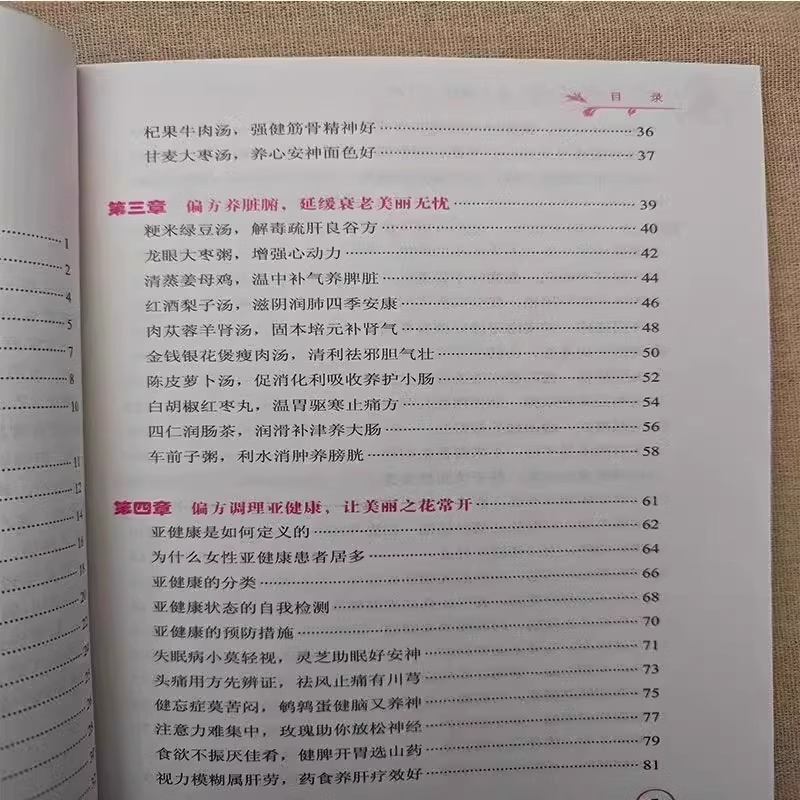 1
2
4
5
7
8
10
11
12
14
16
18
20
目录
杞果牛肉汤，强健筋骨精神好 36
甘麦大枣汤，养心安神面色好 37
第三章 偏方养脏腑、延缓衰老美丽无忧 39
粳米绿豆汤，解毒疏肝良谷方 40
龙眼大枣粥，增强心动力 42
清蒸姜母鸡，温中补气养脾脏 44
红酒梨子汤，滋阴润肺四季安康 46
肉苁蓉羊肾汤，固本培元补肾气 48
金钱银花煲瘦肉汤，清利祛邪胆气壮 50
陈皮萝卜汤，促消化利吸收养护小肠 52
白胡椒红枣丸，温胃驱寒止痛方 54
四仁润肠茶，润滑补津养大肠 56
车前子粥，利水消肿养膀胱 58
第四章 偏方调理亚健康、让美丽之花常开 61
亚健康是如何定义的 62
为什么女性亚健康患者居多 64
亚健康的分类 66
亚健康状态的自我检测 68
亚健康的预防措施 70
失眠病小莫轻视，灵芝助眠好安神 71
头痛用方先辨证，祛风止痛有川芎 73
健忘症莫苦闷，鹌鹑蛋健脑又养神 75
注意力难集中，玫瑰助你放松神经 77
食欲不振厌佳肴，健脾开胃选山药 79
视力模糊属肝劳，药食养肝疗效好 81